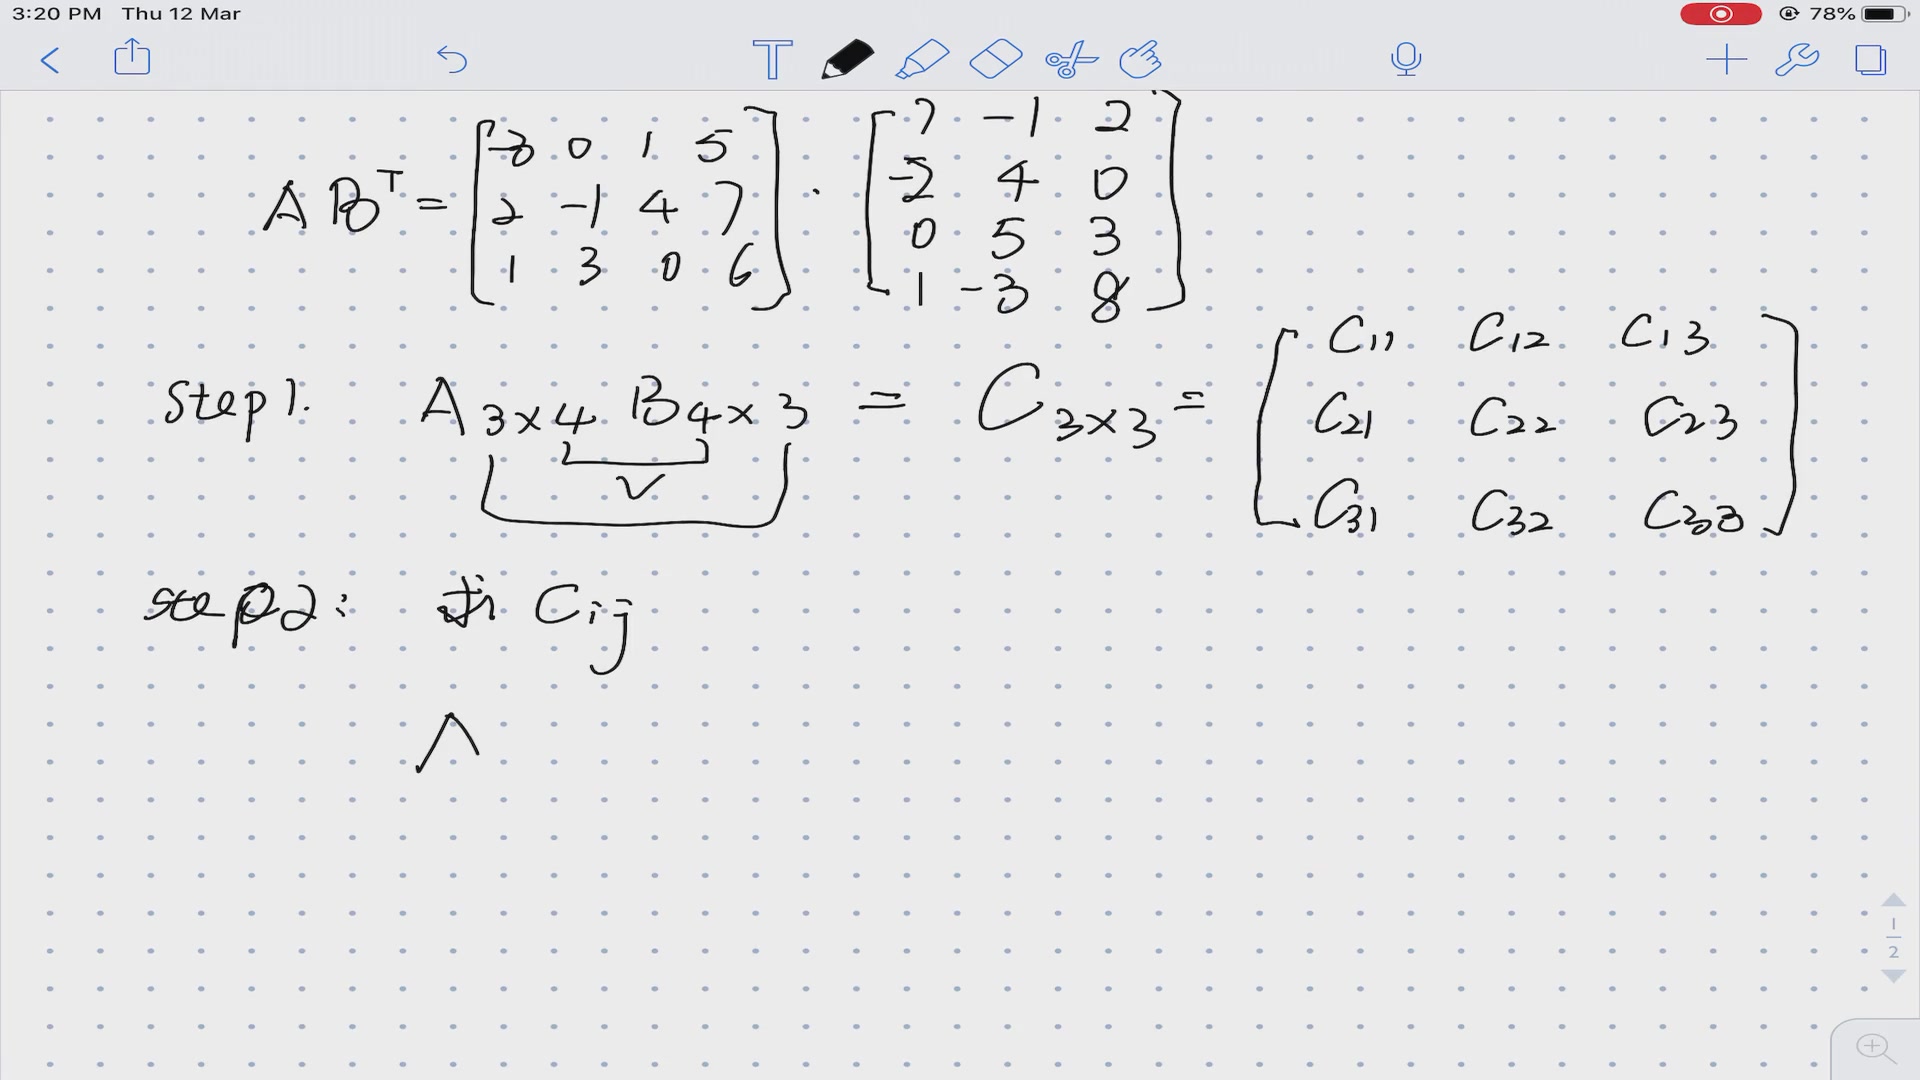 3:20 PM Thu 12 Mar
78%
T
A B^T = [ -3 0 1 5 ] · [ 7 -1 2 ]
2 -1 4 7 -2 4 0
1 3 0 6 0 5 3
1 -3 8
step 1. A 3×4 B 4×3 = C 3×3 = [ C11 C12 C13 ]
C21 C22 C23
C31 C32 C33
step 2: 求 Cij
1
2